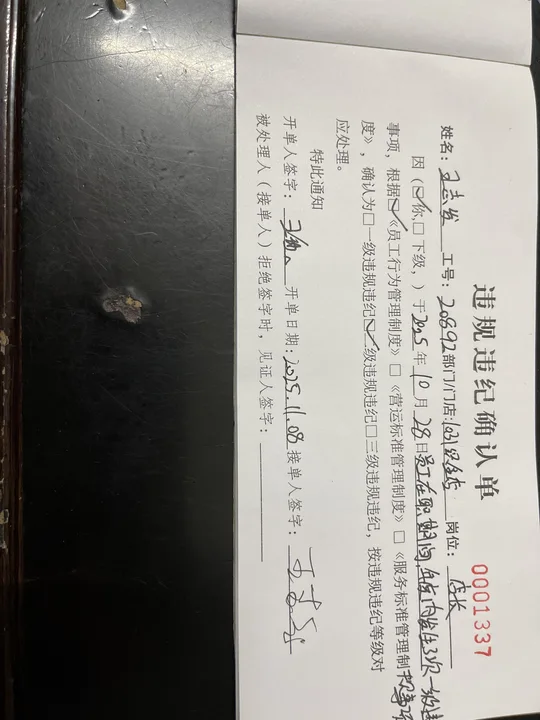 违规违纪确认单
0001337
姓名：王志发 工号：20892 部门/门店： 岗位：店长
因（☑你，□下级，）于2025年10月28日员工在职期间，年度内发生3次一级违
事项，根据☑《员工行为管理制度》□《营运标准管理制度》□《服务标准管理制
度》，确认为□一级违规违纪☑二级违规违纪□三级违规违纪，按违规违纪等级对
应处理。
特此通知
开单人签字： 开单日期：2025.11.08 接单人签字：王志发
被处理人（接单人）拒绝签字时，见证人签字：